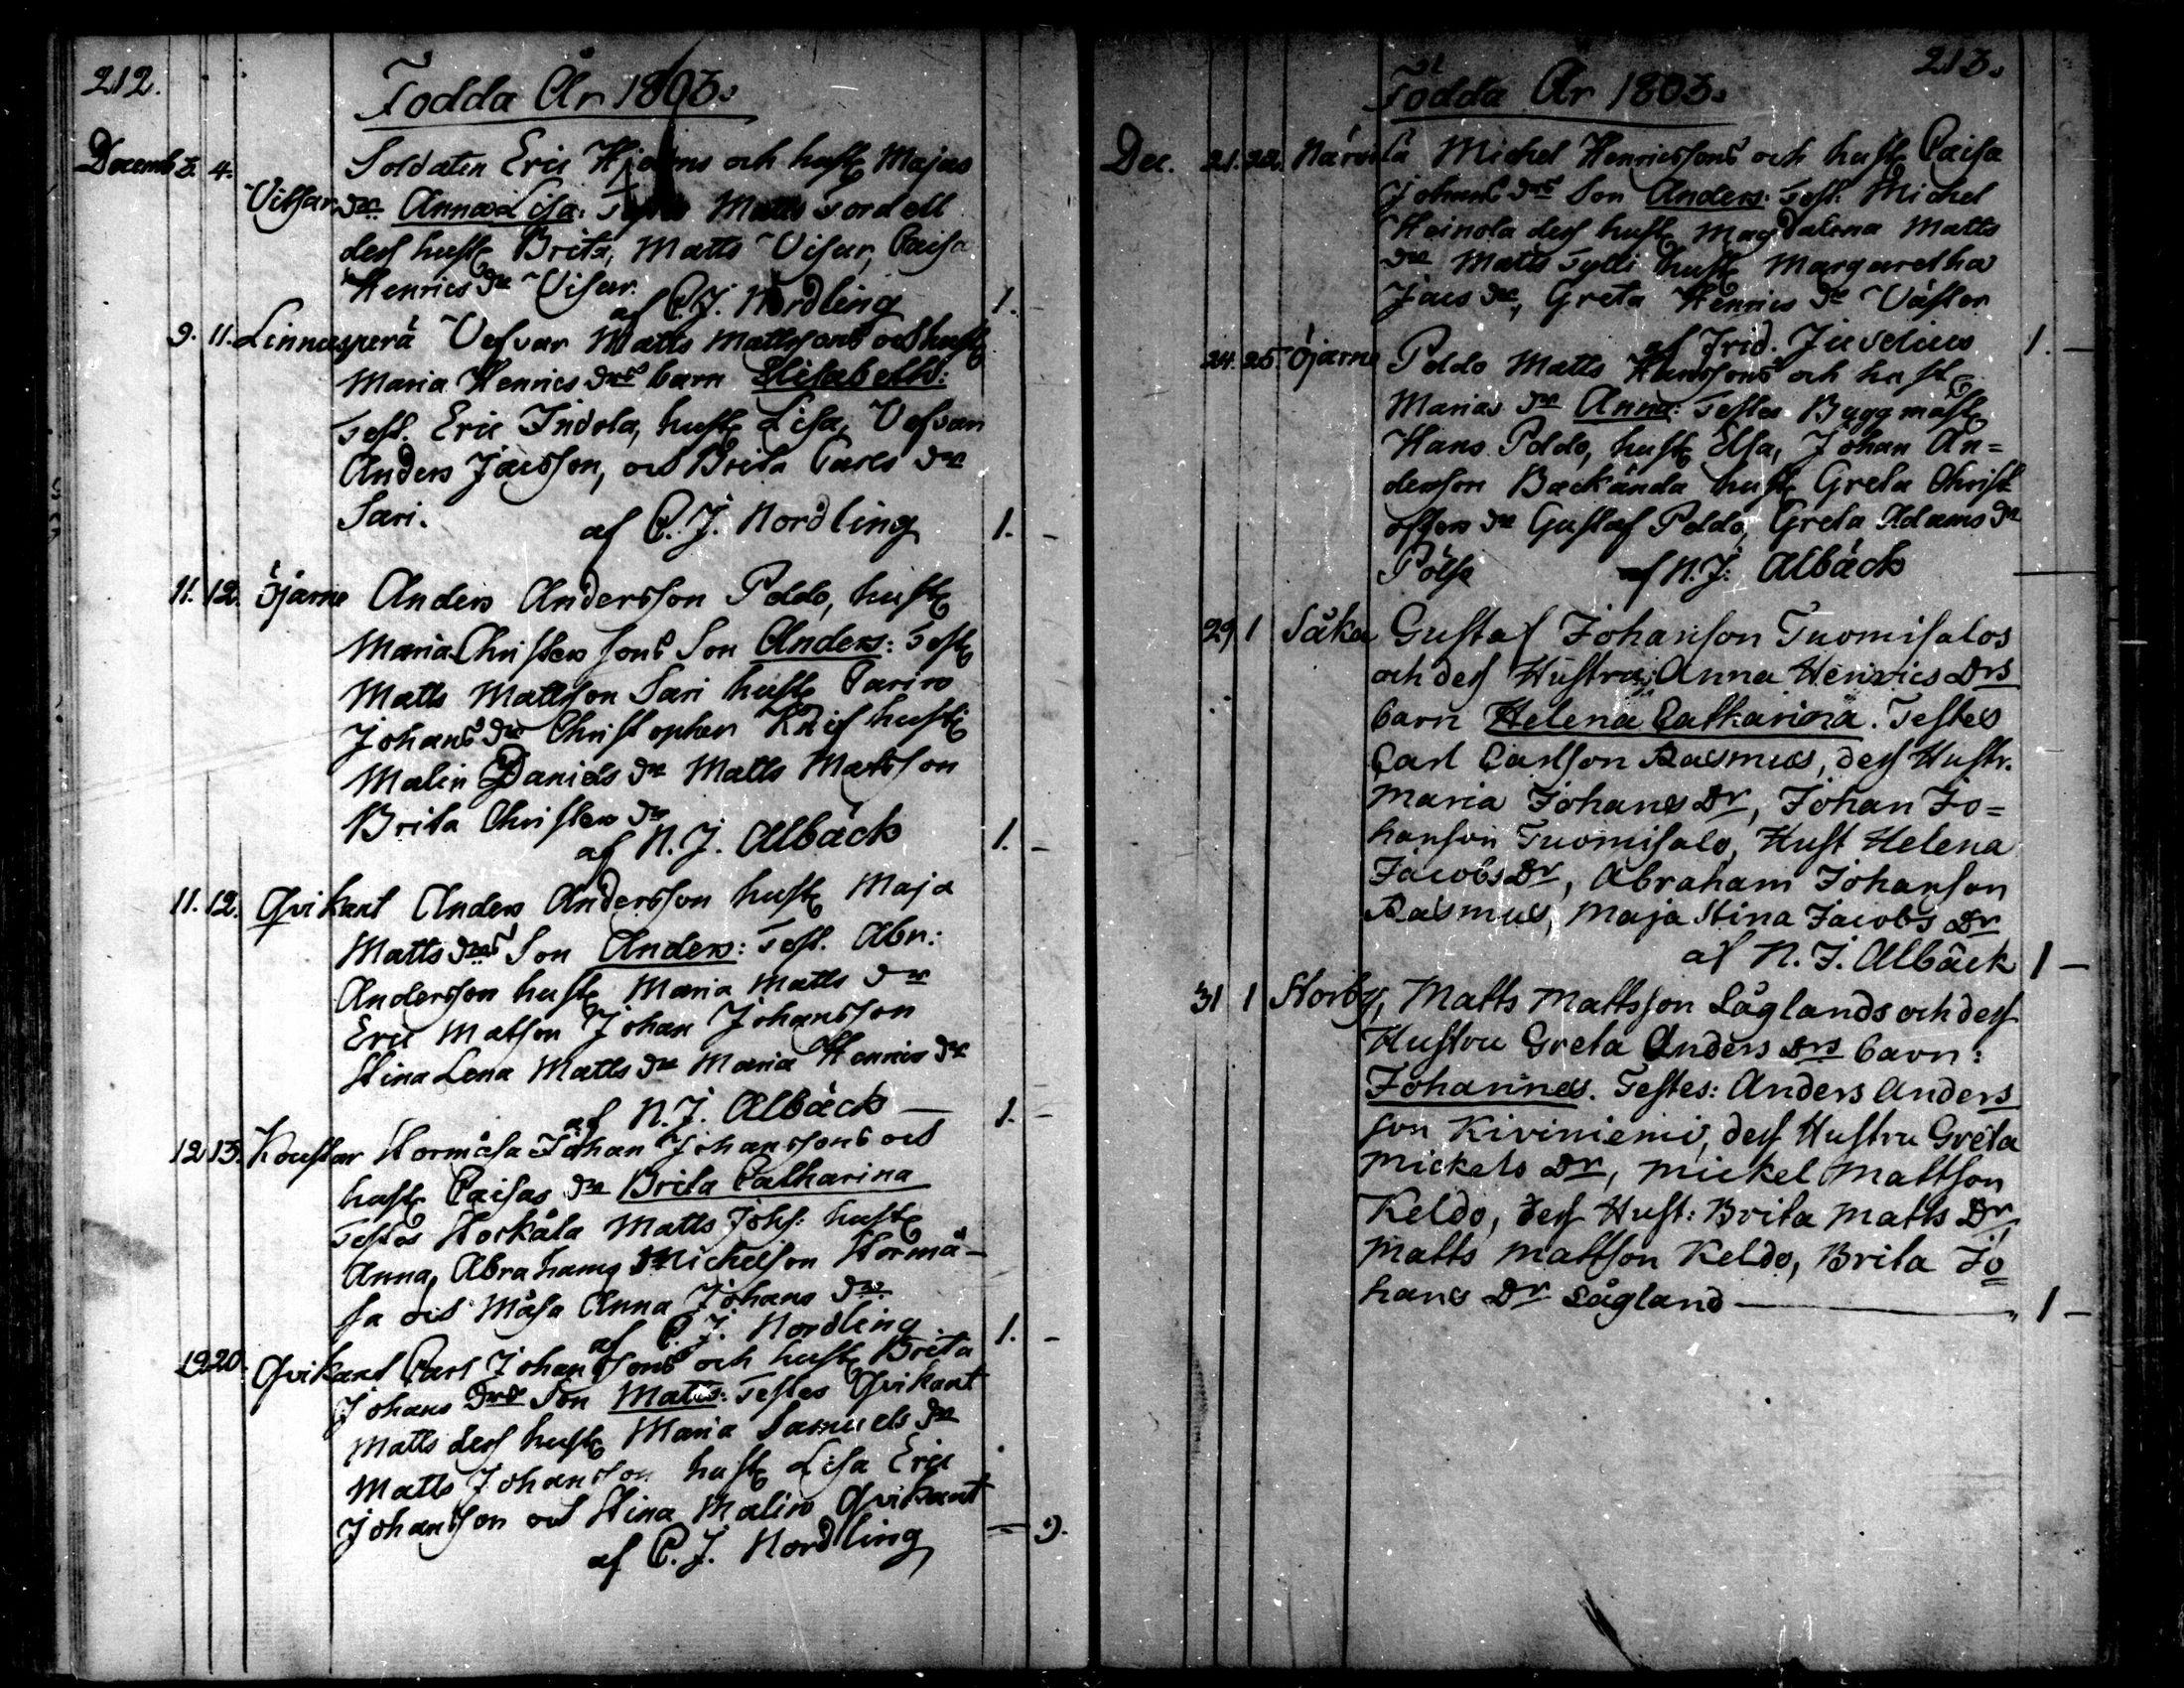 212.
Födda År 1803.
Decemb 3. 4. Soldaten Eric Hjelms och hustr Majas
Vitsar dr Anna Lisa: Testes Matts Tordell
dess hustr Brita, Matts Visar, Caisa
Henrics dr Visar.
af C. J. Nordling 1.
9. 11. Linnusperä Vefvar Matts Mattssons och hustr
Maria Henrics drs barn Elisabeth:
Test. Eric Indola, hustr Lisa, Vefvan
Anders Jacsson, och Brita Carls dr
Sari.
af C. J. Nordling 1. -
11. 12. Öjarne Anders Andersson Poldo, hustr
Maria Christers sons Son Anders: Test
Matts Mattsson Sari hustr Carin
Johans dr Christopher Knif hustr
Malin Daniels dr Matts Matsson
Brita Christers dr
af N. J. Albäck 1. -
11. 12. Qvikant Anders Andersson hustr Maja
Matts drs Son Anders: Test. Abr:
Andersson hustr Maria Matts dr
Eric Matson Johan Johansson
Stina Lena Matts dr Maria Henrics dr
af N. J. Albäck — 1. -
12 13. Koustar Stormåsa Johan Johanssons och
hustr Caisas dr Brita Catharina
Testes Storkåla Matts Johs: hustr
Anna, Abraham Michelson Stormå-
sa och Måsa Anna Johans dr
af C. J. Nordling. 1. -
19 20. Qvikant Carl Johanssons och hustr Brita
Johans drs Son Matts: Testes Qvikant
Matts dess hustr Maria Samuels dr
Matts Johansson hustr Lisa Eric
Johansson och Stina Malin Qvikant
af C. J. Nordling — 1.
213.
Födda År 1803.
Dec. 21. 22. Närvilä Michel Henricssons och hustr Caisa
Johans drs Son Anders: Test. Michel
Heinola dess hustr Magdalena Matts
dr Matts Tylli hustr Margaretha
Jacs dr, Greta Henrics dr Väster
af Frid. Juvelius 1. —
24. 25. Öjarne Poldo Matts Hanssons och hustr
Marias dr Anna: Testes Byggmästr
Hans Poldo, hustr Elsa, Johan An=
dersson Backända hustr Greta Christ
offers dr Gustaf Poldo, Greta Adams dr
Pölsä af N. J. Albäck —
29 1 Såka Gustaf Johanson Tuomisalos
och dess Hustru: Anna Henrics Drs
barn Helena Catharina. Testes
Carl Carlson Rasmus, dess Hustr.
Maria Johans Dr, Johan Jo=
hanson Tuomisalo, Hust Helena
Jacobs Dr, Abraham Johanson
Rasmus, Maja Stina Jacobs Dr
af N. J. Albäck 1 —
31 1 Storby, Matts Mattsson Låglands och dess
Hustru Greta Anders Drs barn:
Johannes. Testes: Anders Anders
son Kiviniemi, dess Hustru Greta
Mickels Dr, Mickel Mattson
Keldo, dess Hust: Brita Matts Dr,
Matts Mattson Keldo, Brita Jo
hans Dr Lågland — 1 —